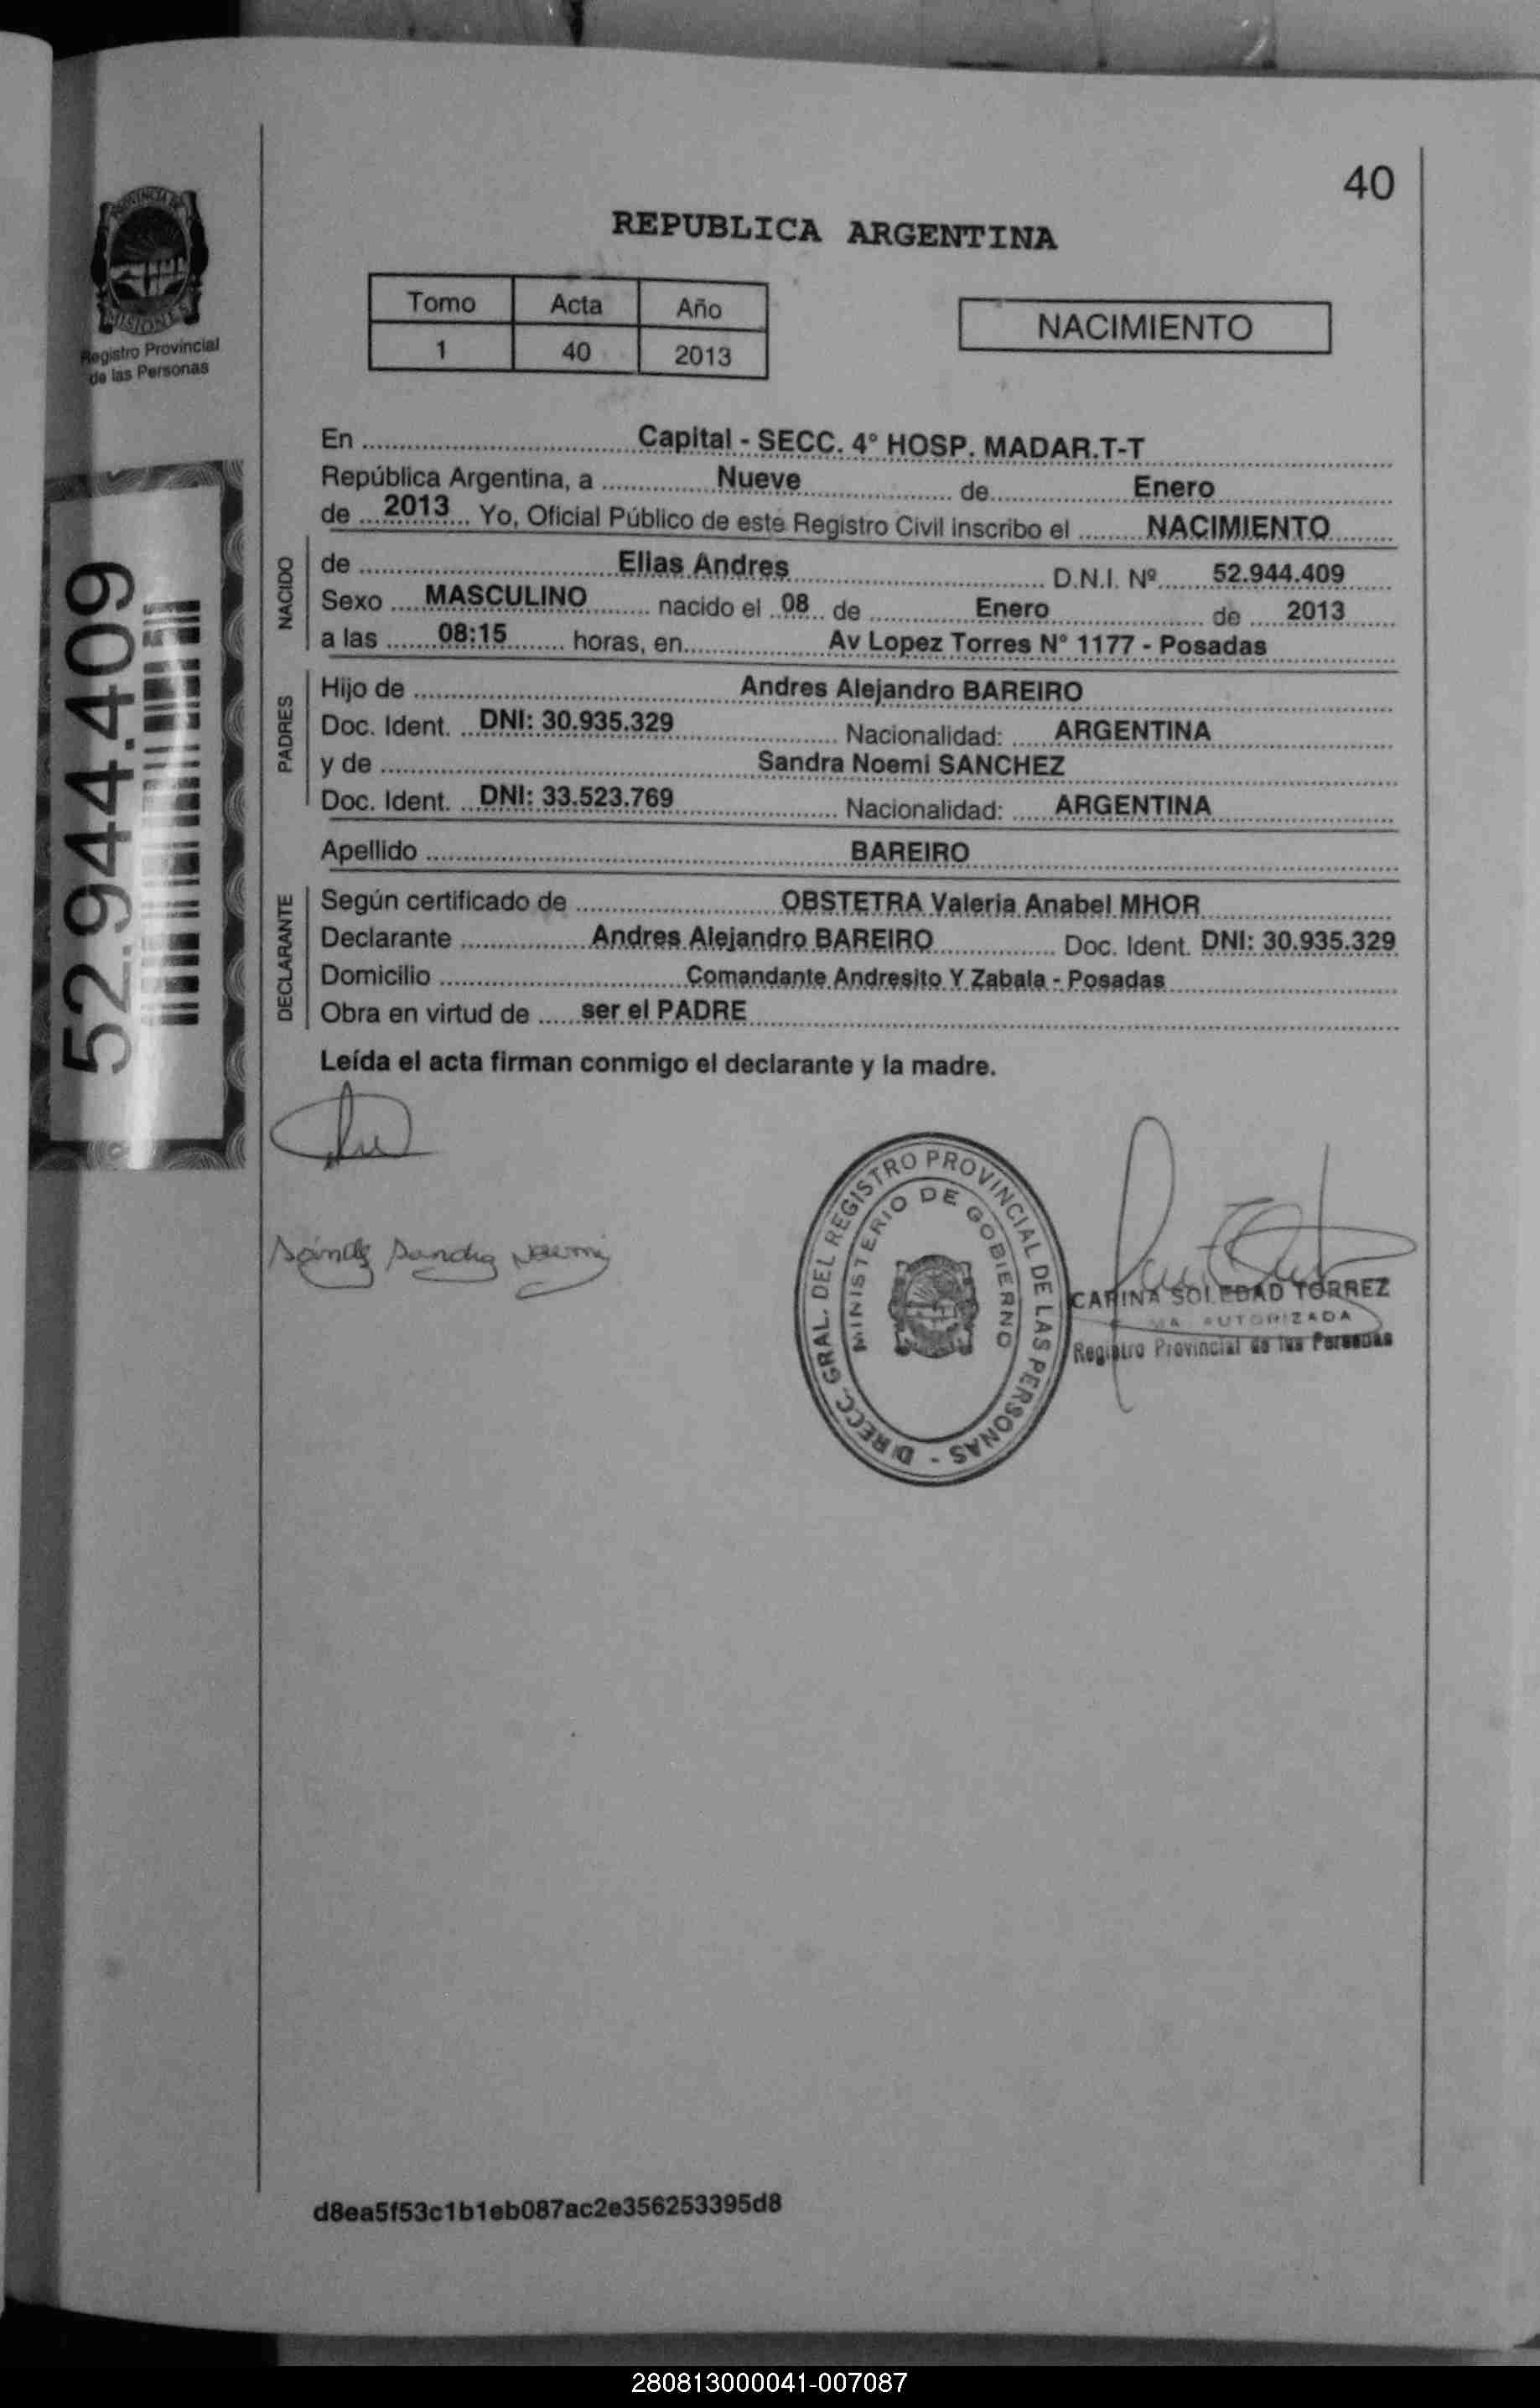 40
PROVINCIA DE
MISIONES
Registro Provincial
de las Personas
REPUBLICA ARGENTINA
Tomo Acta Año
1 40 2013
NACIMIENTO
52.944.409
En Capital - SECC. 4° HOSP. MADAR.T-T
República Argentina, a Nueve de Enero
de 2013 Yo, Oficial Público de este Registro Civil inscribo el NACIMIENTO
NACIDO
de Elias Andres D.N.I. Nº 52.944.409
Sexo MASCULINO nacido el 08 de Enero de 2013
a las 08:15 horas, en Av Lopez Torres N° 1177 - Posadas
PADRES
Hijo de Andres Alejandro BAREIRO
Doc. Ident. DNI: 30.935.329 Nacionalidad: ARGENTINA
y de Sandra Noemi SANCHEZ
Doc. Ident. DNI: 33.523.769 Nacionalidad: ARGENTINA
Apellido BAREIRO
DECLARANTE
Según certificado de OBSTETRA Valeria Anabel MHOR
Declarante Andres Alejandro BAREIRO Doc. Ident. DNI: 30.935.329
Domicilio Comandante Andresito Y Zabala - Posadas
Obra en virtud de ser el PADRE
Leída el acta firman conmigo el declarante y la madre.
DIRECC. GRAL. DEL REGISTRO PROVINCIAL DE LAS PERSONAS -
MINISTERIO DE GOBIERNO
CARINA SOLEDAD TORREZ
AUTORIZADA
Registro Provincial de las Personas
d8ea5f53c1b1eb087ac2e356253395d8
280813000041-007087